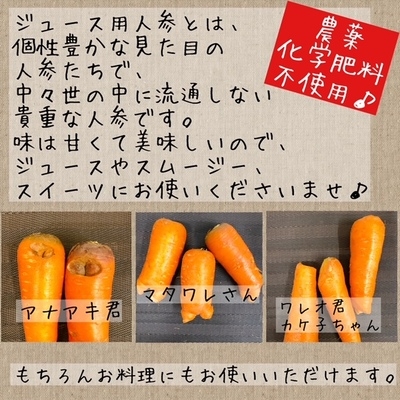 ジュース用人参とは、
個性豊かな見た目の
人参たちで、
中々世の中に流通しない
貴重な人参です。
味は甘くて美味しいので、
ジュースやスムージー、
スイーツにお使いくださいませ♪
農薬
化学肥料
不使用♪
アナアキ君
マタワレさん
ワレオ君
カケ子ちゃん
もちろんお料理にもお使いいただけます。